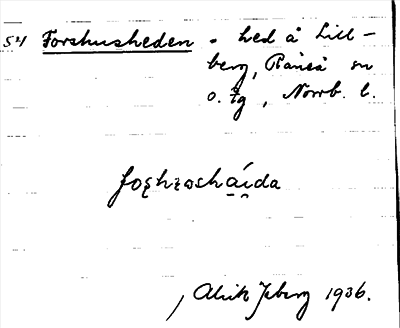 54 Forshusheden = hed å Lill-
berg, Råneå sn
o. tg, Norrb. l.
foşhzɷsháida
Alrik Isberg 1936.